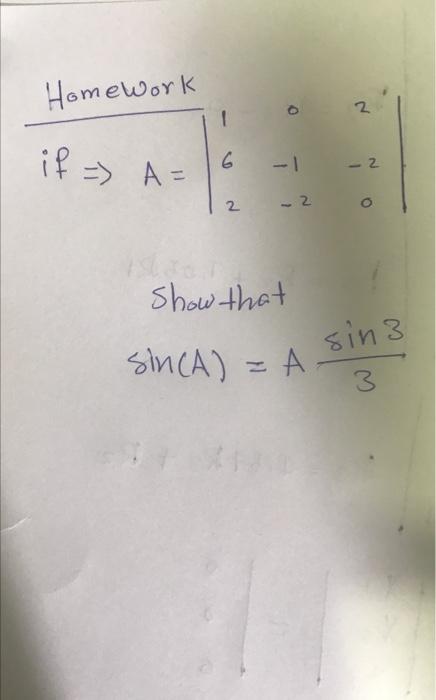 Homework
if => A = | 1 0 2 |
| 6 -1 -2 |
| 2 -2 0 |
Show that
sin(A) = A sin 3 / 3